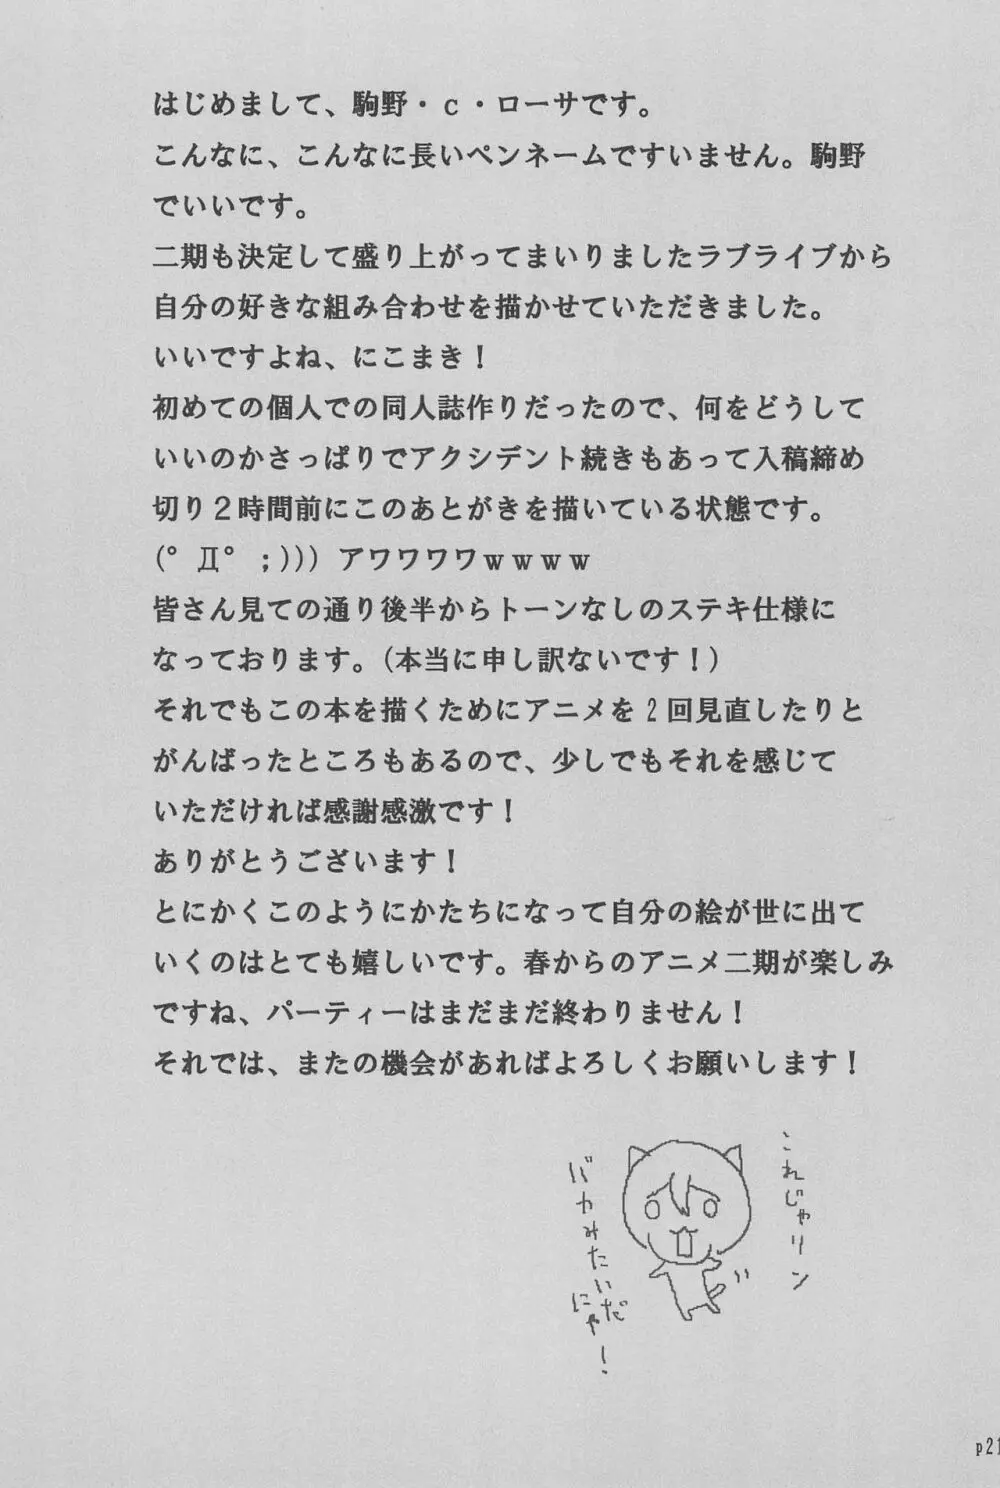 はじめまして、駒野・ｃ・ローサです。
こんなに、こんなに長いペンネームですいません。駒野
でいいです。
二期も決定して盛り上がってまいりましたラブライブから
自分の好きな組み合わせを描かせていただきました。
いいですよね、にこまき！
初めての個人での同人誌作りだったので、何をどうして
いいのかさっぱりでアクシデント続きもあって入稿締め
切り２時間前にこのあとがきを描いている状態です。
(ﾟДﾟ;))) アワワワワｗｗｗｗ
皆さん見ての通り後半からトーンなしのステキ仕様に
なっております。(本当に申し訳ないです！)
それでもこの本を描くためにアニメを2回見直したりと
がんばったところもあるので、少しでもそれを感じて
いただければ感謝感激です！
ありがとうございます！
とにかくこのようにかたちになって自分の絵が世に出て
いくのはとても嬉しいです。春からのアニメ二期が楽しみ
ですね、パーティーはまだまだ終わりません！
それでは、またの機会があればよろしくお願いします！
これじゃリン
バカみたいだ
にゃ！
p21